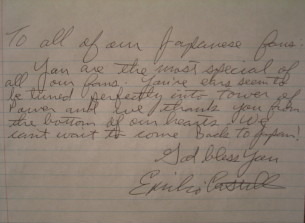 To all of our Japanese fans.
You are the most special of
all our fans. You're ears seem to
be tuned perfectly into Tower of
Power and we thank you from
the bottom of our hearts. We
can't wait to come back to Japan!
God bless you
Emilio Castillo